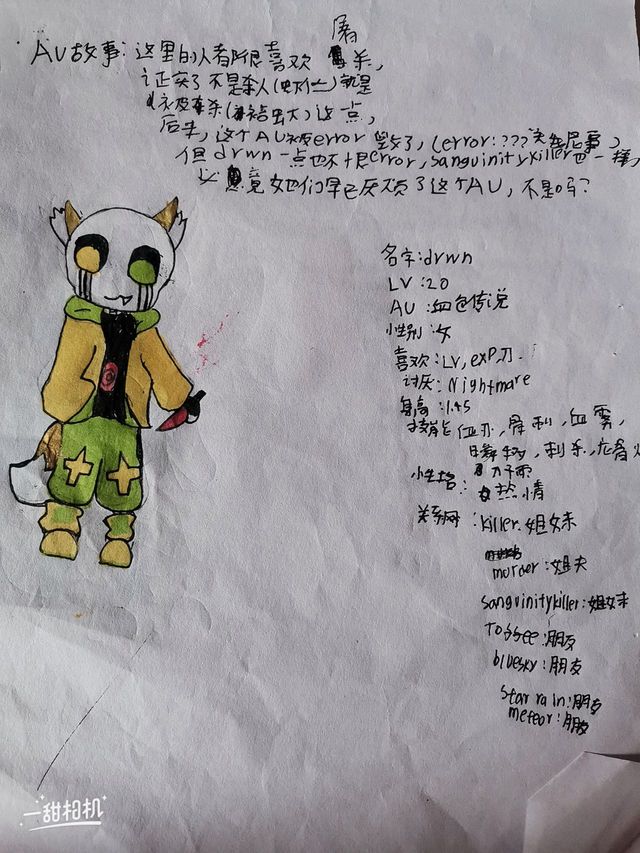 AU故事：这里的人都很喜欢屠杀，
证实了不是杀人就是
被杀这一点，
后来，这个AU被error毁了，(error:???关我屁事)
但drwn一点也不恨error，sanguinitykiller也一样，
毕竟她们早已厌烦了这个AU，不是吗？
名字:drwn
LV:20
AU:血色传说
性别:女
喜欢:LV,exp,刀.
讨厌:Nightmare
身高:1.45
技能 血刃，犀利，血雾，
刺杀，龙骨
刀雨
性格:
热情
关系网:killer.姐妹
murder:姐夫
sanguinitykiller:姐妹
Toffee:朋友
bluesky:朋友
Star rain:朋友
meteor:朋友
一甜相机